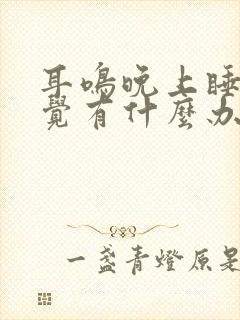 耳鳴晚上睡
覺有什麼办
一盞青燈原是